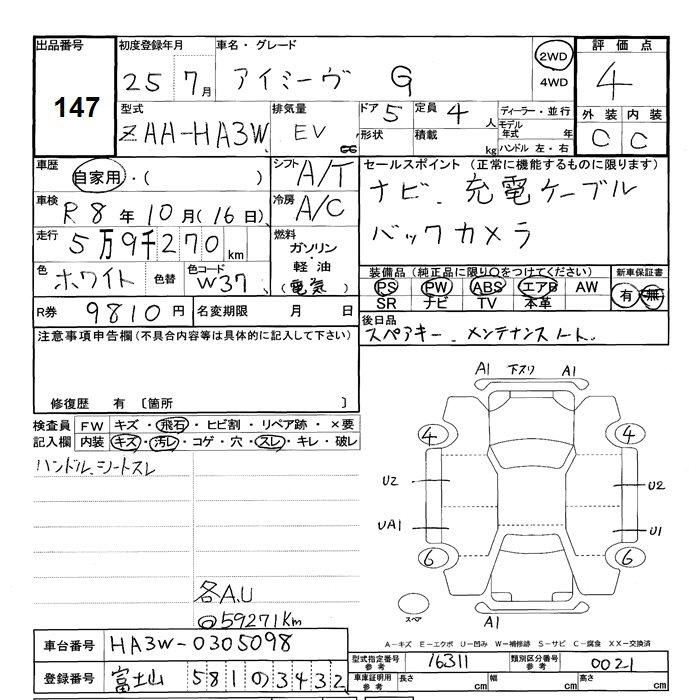 出品番号 初度登録年月 車名・グレード 評価点
147 25 7月 アイミーヴ G 2WD 4WD 4
型式 排気量 ドア 5 定員 4人 ディーラー・並行 外装 内装
ZAA-HA3W EV 形状 積載 kg モデル年式 年 ハンドル 左・右 C C
車歴 自家用・( ) シフト A/T セールスポイント (正常に機能するものに限ります)
車検 R8年10月(16日) 冷房 A/C ナビ. 充電ケーブル
走行 5万9千270km 燃料 ガソリン・軽油 (電気) バックカメラ
色 ホワイト 色替 色コード W37 装備品(純正品に限り○をつけてください) 新車保証書
PS PW ABS エアB AW 有・無
SR ナビ TV 本革
R券 9810円 名変期限 月 日 後日品
スペアキー. メンテナンスノート.
注意事項申告欄(不具合内容等は具体的に記入して下さい)
修復歴 有 〔箇所 〕
A1 下スリ A1
検査員記入欄 FW キズ・飛石・ヒビ割・リペア跡・×要
内装 キズ・汚レ・コゲ・穴・スレ・キレ・破レ
4 4
ハンドル.シートスレ
U2 U2
UA1 U1
6 6
各A.U
@59271Km
スペア A1
車台番号 HA3W-0305098 A-キズ E-エクボ U-凹み W-補修跡 S-サビ C-腐食 XX-交換済
型式指定番号 参考 16311 類別区分番号 参考 0021
登録番号 富士山 581 の 3432 車庫証明用 参考 長さ cm 幅 cm 高さ cm